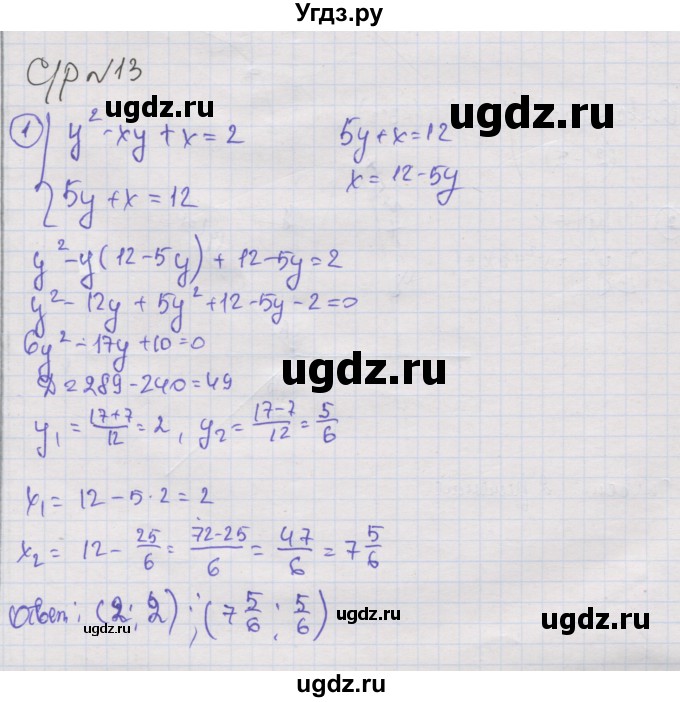 Угдз.ру
С/р №13
ugdz.ru
ugdz.ru
1) { y² - xy + x = 2        5y + x = 12
5y + x = 12        x = 12 - 5y
y² - y(12 - 5y) + 12 - 5y = 2
ugdz.ru
y² - 12y + 5y² + 12 - 5y - 2 = 0
6y² - 17y + 10 = 0
ugdz.ru
D = 289 - 240 = 49
y₁ = (17+7)/12 = 2, y₂ = (17-7)/12 = 5/6
ugdz.ru
ugdz.ru
x₁ = 12 - 5·2 = 2
x₂ = 12 - 25/6 = (72-25)/6 = 47/6 = 7 5/6
ugdz.ru
Ответ: (2; 2); (7 5/6; 5/6)
ugdz.ru
ugdz.ru
ugdz.ru
ugdz.ru